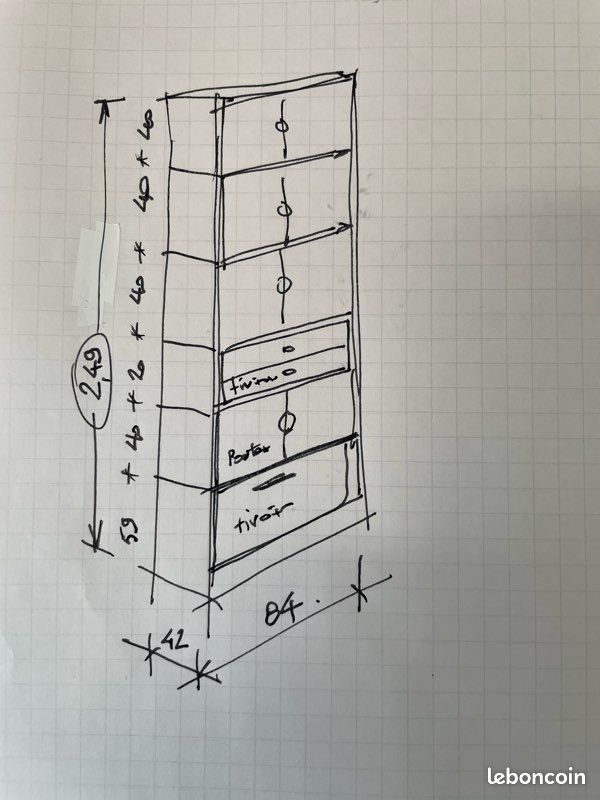 2,49
59 + 40 + 20 + 40 + 40 + 40
tiroir
Portes
tiroir
84.
42
leboncoin